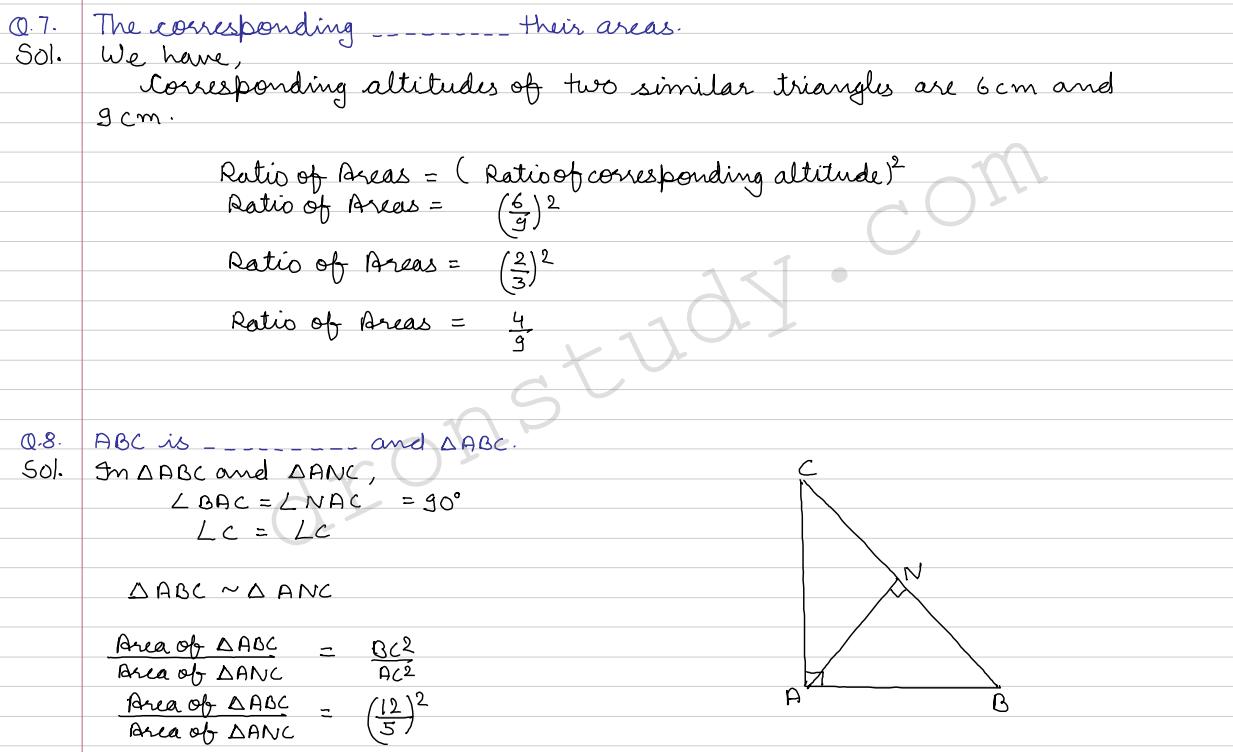 Q.7. The corresponding _ _ _ _ _ _ _ _ _ their areas.
Sol. We have,
Corresponding altitudes of two similar triangles are 6cm and
9cm.
Ratio of Areas = (Ratio of corresponding altitude)²
Ratio of Areas = (6/9)²
Ratio of Areas = (2/3)²
Ratio of Areas = 4/9
Q.8. ABC is _ _ _ _ _ _ _ _ _ and △ABC.
Sol. In △ABC and △ANC,
∠BAC = ∠NAC = 90°
∠C = ∠C
△ABC ~ △ANC
Area of △ABC / Area of △ANC = BC²/AC²
Area of △ABC / Area of △ANC = (12/5)²
C
N
A
B
dronstudy.com